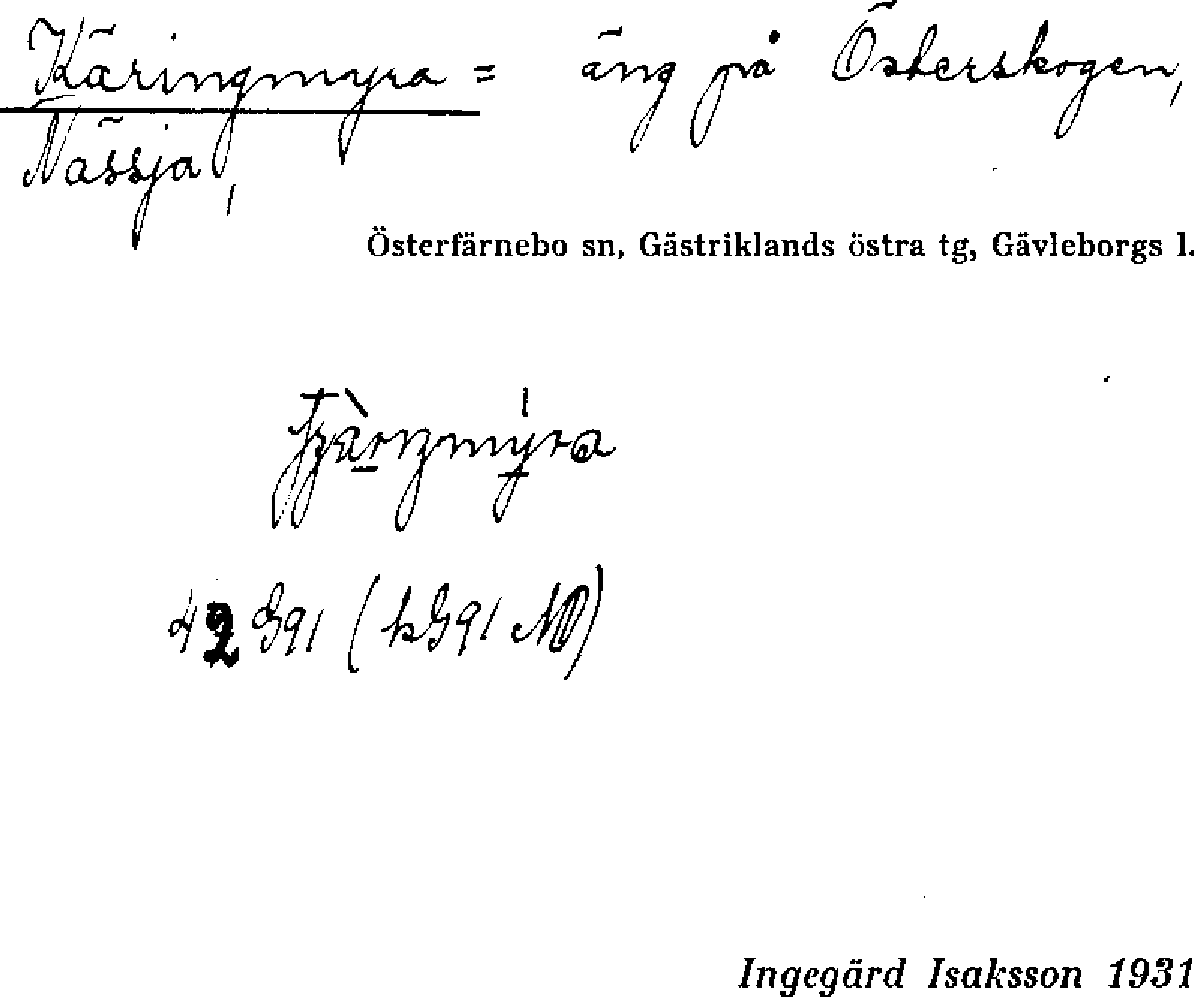 Käringmyra = äng på Österskogen,
Nässja,
Österfärnebo sn, Gästriklands östra tg, Gävleborgs l.
42 G91 (kG91 NO)
Ingegärd Isaksson 1931